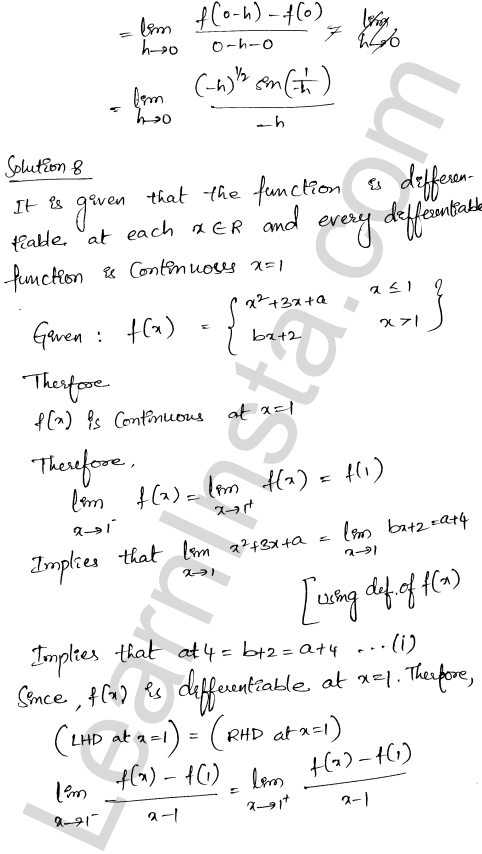 = lim h→0 f(0-h) - f(0) / 0-h-0 ≠ lim h→0
= lim h→0 (-h)^1/2 sin(1/-h) / -h
Solution 8
It is given that the function is differen-
tiable. at each x∈R and every differentiable
function is Continuous x=1
Given : f(x) = { x²+3x+a x≤1
bx+2 x>1 }
Therfore
f(x) is Continuous at x=1
Therefore,
lim x→1⁻ f(x) = lim x→1⁺ f(x) = f(1)
Implies that lim x→1 x²+3x+a = lim x→1 bx+2 = a+4
[using def. of f(x)
Implies that a+4 = b+2 = a+4 ...(i)
Since, f(x) is differentiable at x=1. Therfore,
(LHD at x=1) = (RHD at x=1)
lim x→1⁻ f(x) - f(1) / x-1 = lim x→1⁺ f(x) - f(1) / x-1
LearnInsta.com